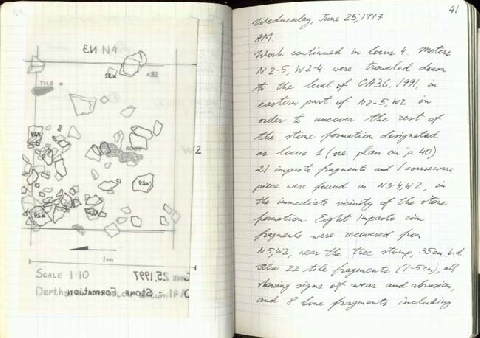 N4 N3
TILE
2
1m
SCALE 1:10
June 25, 1997
Stone Formation
41
Wednesday, June 25, 1997
AM
Work continued in locus 4. Meters
N 2-5, W2-4 were troweled down
to the level of
eastern part of N2-5, W2 in
order to uncover the rest of
the stone formation designated
as locus 1 (see plan on p. 40)
21 imports fragments and 1 coarseware
piece was found in N3-4, W2, in
the immediate vicinity of the stone
formation. Eight imports rim
fragments were recovered from
N5, W3, near the tree stump, 35cm b.d.
Also 22 tile fragments (1-5cm), all
showing signs of wear and abrasion,
and 8 bone fragments including